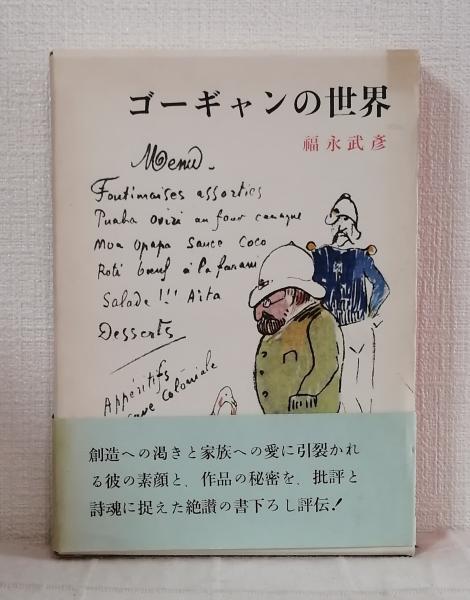 ゴーギャンの世界
福永武彦
Menu
Foutimaises assorties
Puaha Oviri au four canaque
Moa Opapa Sauce Coco
Roti bœuf à la farani
Salade !!! Aïta
Desserts
Appéritifs
coloniale
創造への渇きと家族への愛に引裂かれ
る彼の素顔と、作品の秘密を、批評と
詩魂に捉えた絶讃の書下ろし評伝！